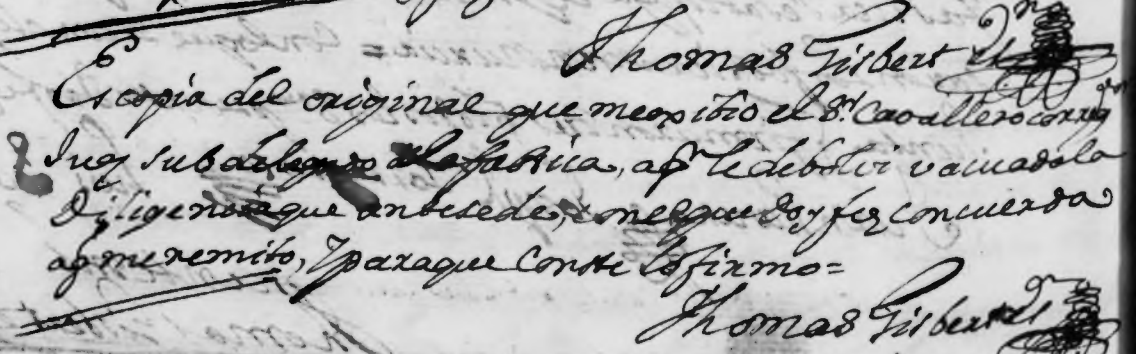 Thomas Gisbert
Es copia del original que me exsivio el Sr. Cavallero correxor
Juez subdelegado de la fabrica, a qn. le debolvi vacuada la
Diligencia que antesede, con el que doy fee concuerda
a q me remito, Y para que Conste lo firmo=
Thomas Gisbert